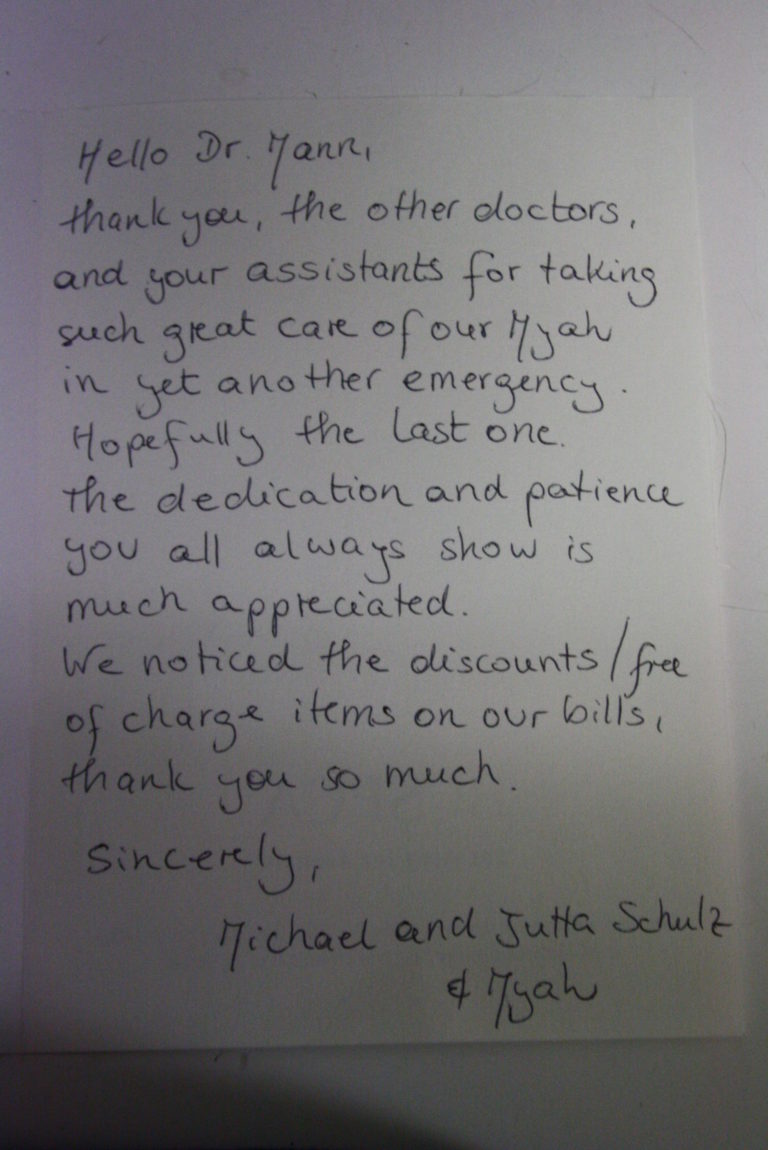 Hello Dr. Mann,
thank you, the other doctors,
and your assistants for taking
such great care of our Myah
in yet another emergency.
Hopefully the last one.
The dedication and patience
you all always show is
much appreciated.
We noticed the discounts/free
of charge items on our bills,
thank you so much.
Sincerely,
Michael and Jutta Schulz
& Myah